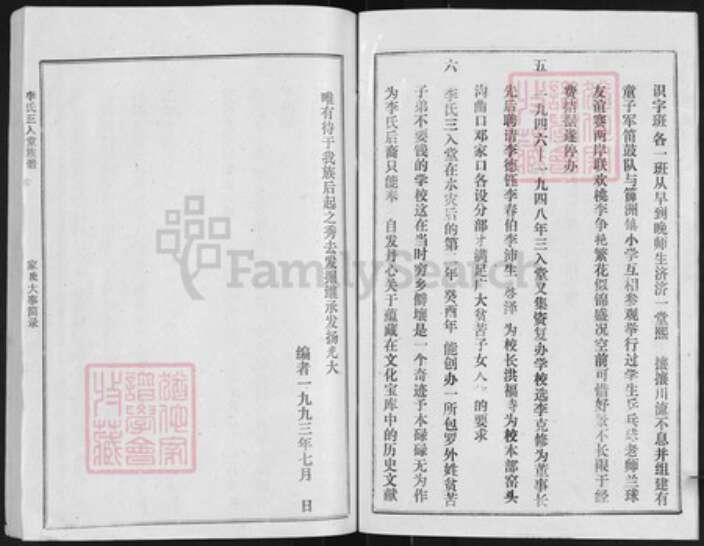 识字班各一班从早到晚师生济济一堂熙 攘攘川流不息并组建有
童子军笛鼓队与簰洲镇小学互相参观举行过学生乒乓球老师兰球
友谊赛两岸联欢桃李争艳繁花似锦盛况空前可惜好 不长限于经
费 遂停办
五 一九四六—一九四八年三入堂又集资复办学校选李克修为董事长
先后聘请李德钰李春伯李沛生 启泽 为校长洪福寺为校本部窑头
沟曲口邓家口各设分部才满足广大贫苦子女入 的要求
六 李氏三入堂在水灾后的第二年癸酉年 能创办一所包罗外姓贫苦
子弟不要钱的学校这在当时穷乡僻壤是一个奇迹予本碌碌无为作
为李氏后裔只能奉 自发丹心关于蕴藏在文化宝库中的历史文献
唯有待于我族后起之秀去发掘继承发扬光大
编者一九九三年七月 日
李氏三入堂族谱
家史大事简录
FamilySearch